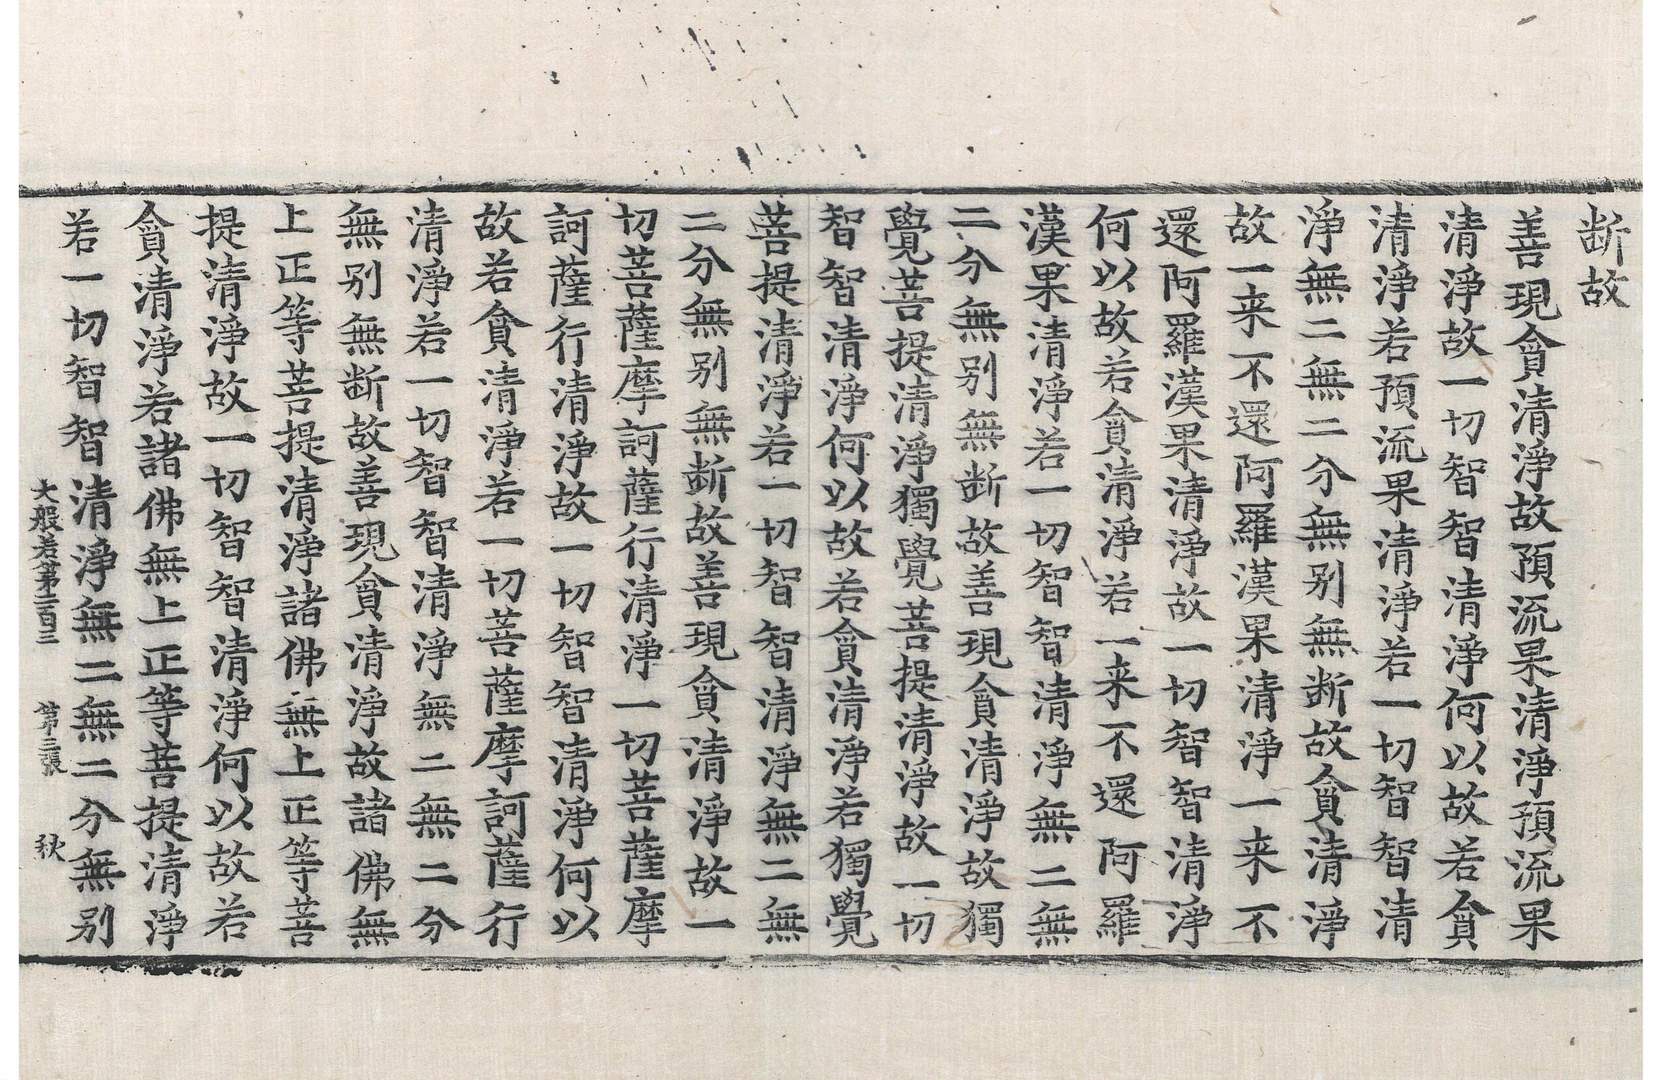 断故
善現貪清淨故預流果清淨預流果
清淨故一切智智清淨何以故若貪
清淨若預流果清淨若一切智智清
淨無二無二分無别無断故貪清淨
故一来不還阿羅漢果清淨一来不
還阿羅漢果清淨故一切智智清淨
何以故若貪清淨若一来不還阿羅
漢果清淨若一切智智清淨無二無
二分無别無断故善現貪清淨故獨
覺菩提清淨獨覺菩提清淨故一切
智智清淨何以故若貪清淨若獨覺
菩提清淨若一切智智清淨無二無
二分無别無断故善現貪清淨故一
切菩薩摩訶薩行清淨一切菩薩摩
訶薩行清淨故一切智智清淨何以
故若貪清淨若一切菩薩摩訶薩行
清淨若一切智智清淨無二無二分
無别無断故善現貪清淨故諸佛無
上正等菩提清淨諸佛無上正等菩
提清淨故一切智智清淨何以故若
貪清淨若諸佛無上正等菩提清淨
若一切智智清淨無二無二分無别
大般若第二百三 第三張 秋